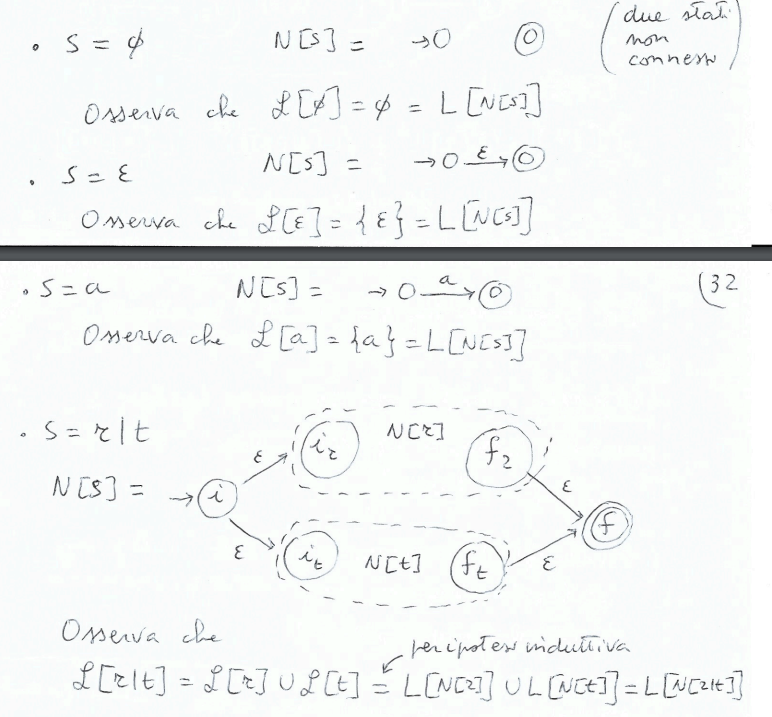 • S = ϕ N[S] = →O ◎ (due stati
non
connessi)
Osserva che ℒ[ϕ] = ϕ = L[N[S]]
• S = ε N[S] = →O –ε→ ◎
Osserva che ℒ[ε] = {ε} = L[N[S]]
• S = a N[S] = →O –a→ ◎ (32
Osserva che ℒ[a] = {a} = L[N[S]]
• S = r|t
ε i_r N[r] f_r ε
N[S] = → i f
ε i_t N[t] f_t ε
Osserva che
per ipotesi induttiva
ℒ[r|t] = ℒ[r] ∪ ℒ[t] = L[N[r]] ∪ L[N[t]] = L[N[r|t]]